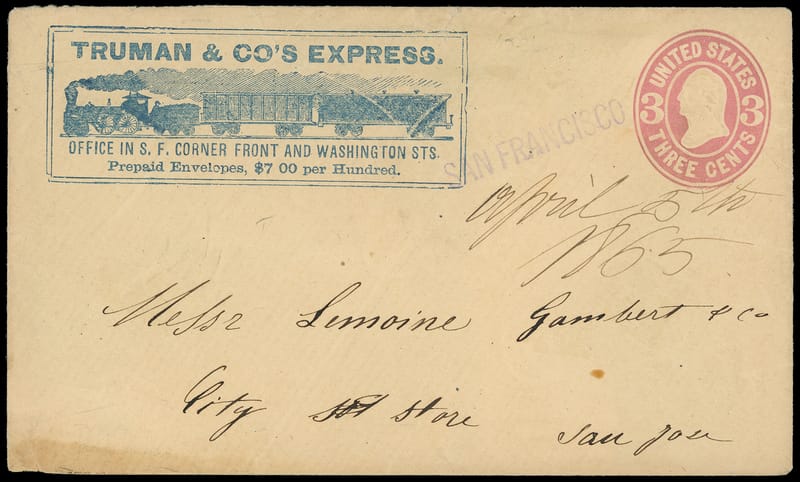 TRUMAN & CO'S EXPRESS.
OFFICE IN S. F. CORNER FRONT AND WASHINGTON STS.
Prepaid Envelopes, $7 00 per Hundred.
SAN FRANCISCO
UNITED STATES
3 3
THREE CENTS
April 5th
1865
Messr Lemoine Gambert & Co
City store
San Jose